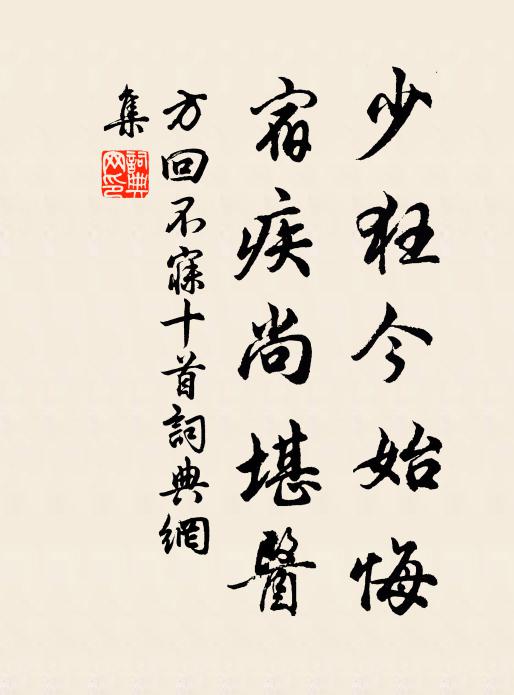 少狂今始悔
宿疾尚堪醫
方回不寐十首詞典網
集
詞典網印